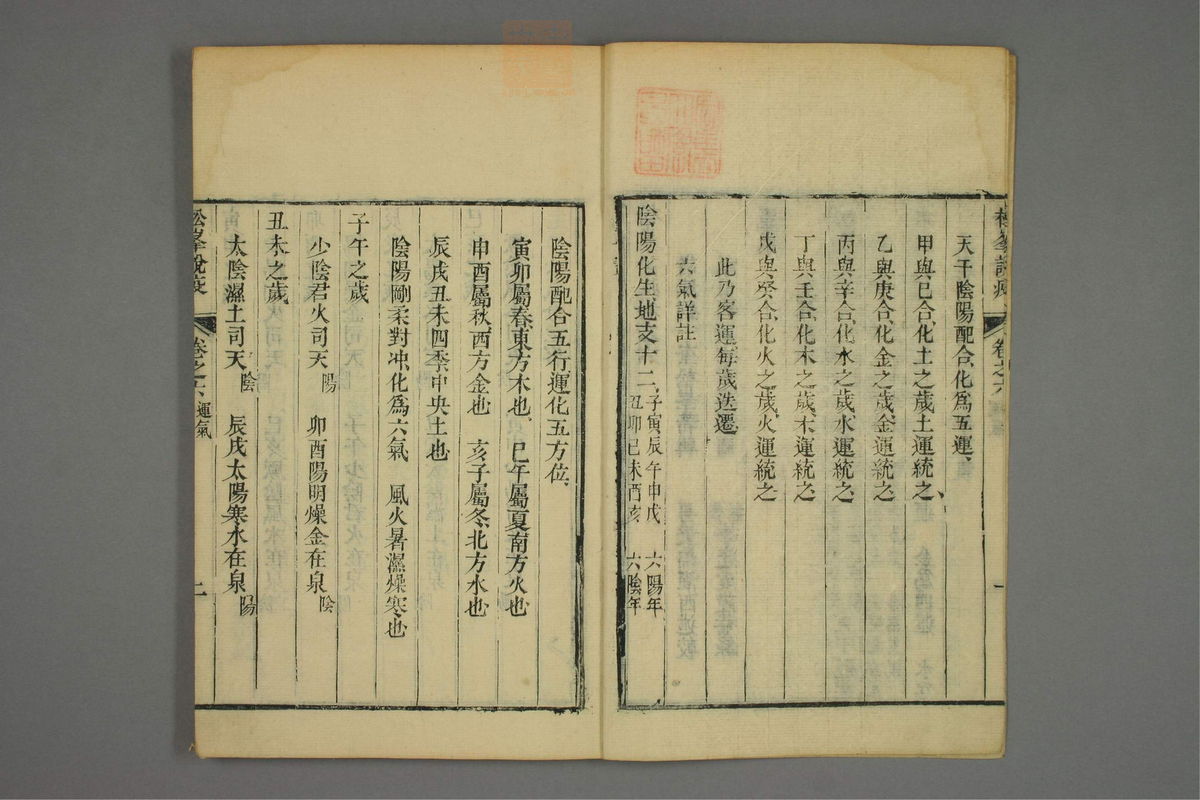 天干陰陽配合、化爲五運、
甲與己合、化土之歲、土運統之、
乙與庚合、化金之歲、金運統之、
丙與辛合、化水之歲、水運統之、
丁與壬合、化木之歲、木運統之、
戊與癸合、化火之歲、火運統之、
此乃客運、每歲迭遷、
六氣詳註
陰陽化生、地支十二、子寅辰午申戌 六陽年
丑卯巳未酉亥 六陰年
陰陽配合五行運化五方位、
寅卯屬春、東方木也、巳午屬夏、南方火也
申酉屬秋、西方金也 亥子屬冬、北方水也
辰戌丑未四季、中央土也
陰陽剛柔對冲、化爲六氣 風火暑濕燥寒也
子午之歲、
少陰君火司天 陽 卯酉陽明燥金在泉 陰
丑未之歲、
太陰濕土司天、陰 辰戌太陽寒水在泉 陽
松峯說疫 卷之六、運氣 二